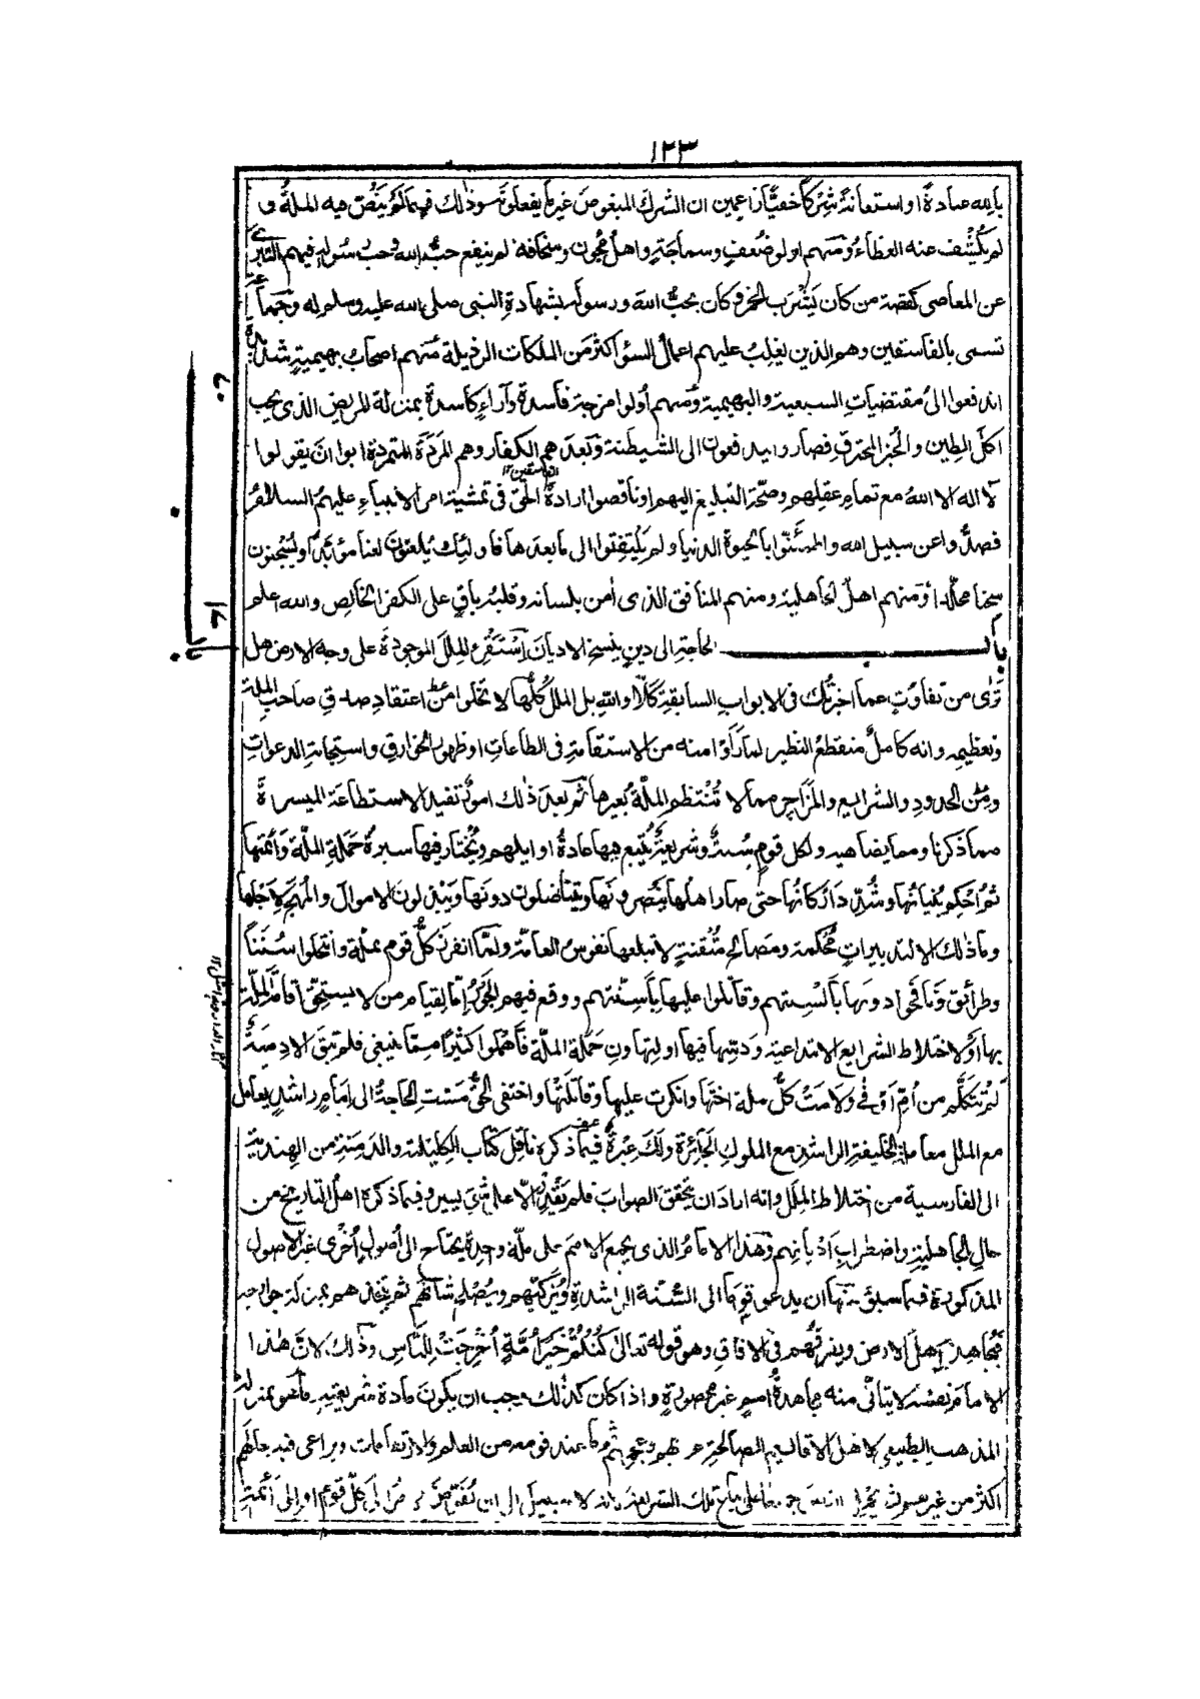 ١٢٣
بالله عبادةً او استعانةً شركًا خفيًّا زاعمين ان الشرك المبغوض غير ما يفعلونه وذلك فيما لم تنص فيه الملة و
لم يكشف عنه الغطاء ومنهم اولو ضعف وسماجة واهل مجون وسخافة لم ينفع حب الله وحب رسوله فيهم التبري
عن المعاصى كقصة من كان يشرب الخمر وكان يحب الله ورسوله بشهادة النبى صلى الله عليه وسلم له وجماعة
تسمى بالفاسقين وهم الذين يغلب عليهم اعمال السوء اكثر من الملكات الرذيلة منهم اصحاب بهيمية شديدة
اندفعوا الى مقتضيات السبعية والبهيمية ومنهم اولوا امزجة فاسدة وآراء كاسدة بمنزلة المريض الذى يحب
اكل الطين والخبز المحترق فصاروا يندفعون الى الشيطنة وبعدهم الكفار وهم المردة المتمردة ابوا ان يقولوا
لا اله الا الله مع تمام عقلهم وصحة التبليغ اليهم او ناقضوا ارادة الحق فى تمشية امر الانبياء عليهم السلام
فصدوا عن سبيل الله واطمئنوا بالحيوة الدنيا ولم يلتفتوا الى ما بعدها فاولئك يلعنون لعنا مؤبدا ويسجنون
سجنا مخلدا ومنهم اهل الجاهلية ومنهم المنافق الذى آمن بلسانه وقلبه باق على الكفر الخالص والله اعلم
باب الحاجة الى دين ينسخ الاديان استقرئ الملل الموجودة على وجه الارض هل
ترى من تفاوت عما اخبرتك فى الابواب السابقة كلا والله بل الملل كلها لا تخلوا من اعتقاد صدق صاحب الملة
وتعظيمه وانه كامل منقطع النظير لما رأوا منه من الاستقامة فى الطاعات او ظهور الخوارق واستجابة الدعوات
ومن الحدود والشرايع والمزاجر مما لا تنتظم الملة بغيرها ثم بعد ذلك امور تفيد الاستطاعة الميسرة
مما ذكرنا ومما يضاهيه ولكل قوم سنة وشريعة يتبع فيها عادة اوايلهم ويختار فيها سيرة حملة الملة وائمتها
ثم احكم بنيانها وشدد اركانها حتى صار اهلها ينصرونها ويتناضلون دونها ويبذلون الاموال والمهج لاجلها
وما ذلك الا لتدبيرات محكمة ومصالح متقنة لا تبلغها نفوس العامة ولما انفرز كل قوم بملة وانتحلوا سننا
وطرائق ونافحوا دونها بألسنتهم وقاتلوا عليها بأسنتهم ووقع فيهم الجور اما لقيام من لا يستحق اقامة الملة
بها او لاختلاط الشرايع الابتداعية ودسها فيها او لتهاون حملة الملة فأهملوا كثيرا مما ينبغى فلم تبق الا دمنة
لم تتكلم من ام اوفى ولامت كل ملة اختها وانكرت عليها وقاتلتها واختفى الحق مست الحاجة الى امام راشد يعامل
مع الملل معاملة الخليفة الراشد مع الملوك الجائرة ولك عبرة فيما ذكره ناقل كتاب الكليلة والدمنة من الهندية
الى الفارسية من اختلاط الملل وانه اراد ان يتحقق الصواب فلم يقدر الا على شئ يسير وفيما ذكره اهل التاريخ من
حال الجاهلية واضطراب اديانهم وهذا الامام الذى يجمع الامم على ملة واحدة يحتاج الى أصول أخرى غير الاصول
المذكورة فيما سبق منها ان يدعو قوما الى السنة الراشدة ويزكيهم ويصلح شانهم ثم يتخذهم بمنزلة جوارحه
فيجاهد اهل الارض ويفرقهم فى الآفاق وهو قوله تعالى كنتم خير امة اخرجت للناس وذلك لان هذا
الامام نفسه لا يتأتى منه مجاهدة امم غير محصورة واذا كان كذلك وجب ان يكون مادة شريعته ما هو بمنزلة
المذهب الطبيعى لاهل الاقاليم الصالحة عربهم وعجمهم ثم ما عند قومه من العلم والارتفاقات ويراعى فيه حالهم
اكثر من غيرهم ثم يحمل الناس جميعا على اتباع تلك الشريعة لانه لا سبيل الى ان يفوض الامر الى كل قوم او الى ائمة